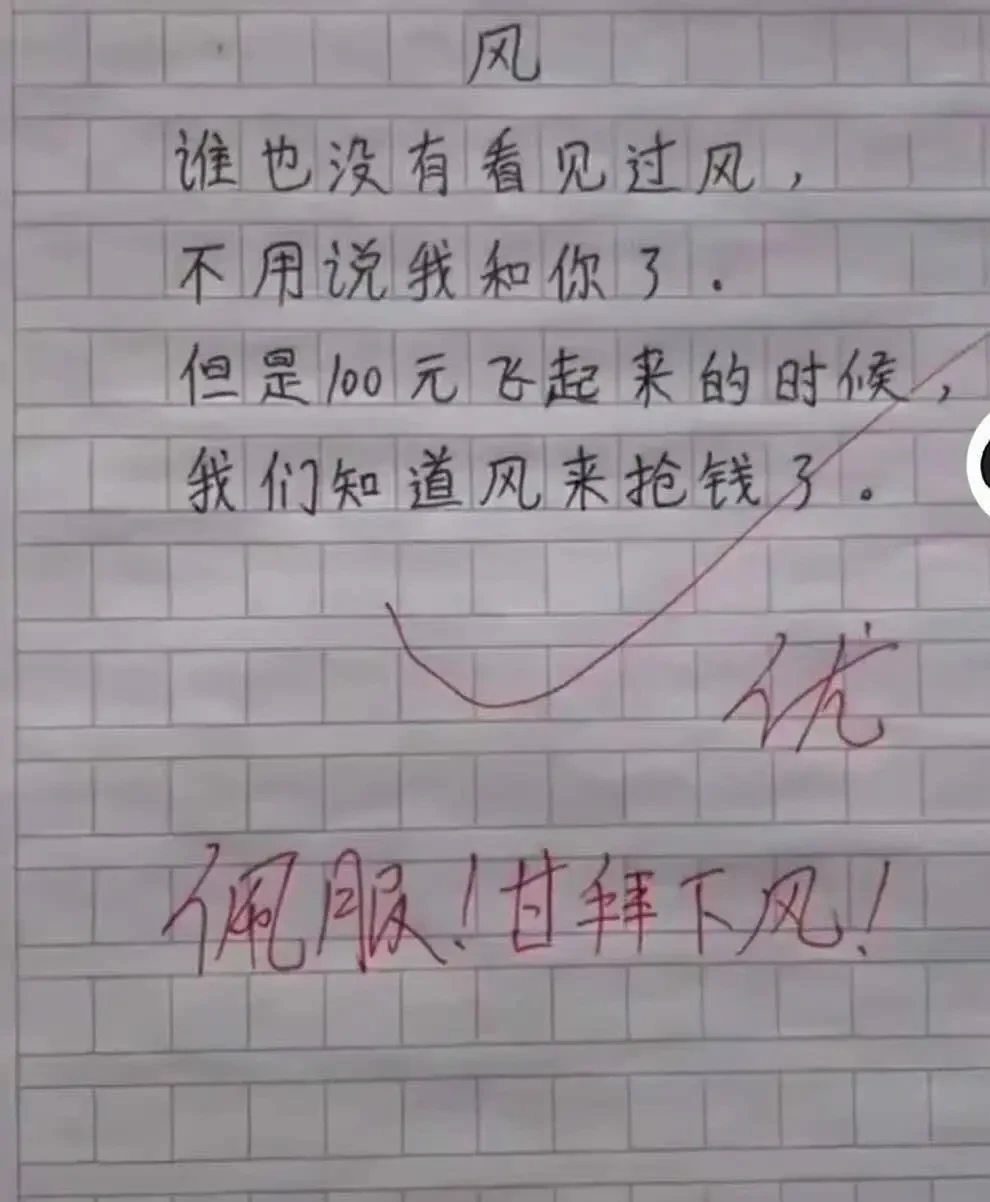 风
谁也没有看见过风，
不用说我和你了．
但是100元飞起来的时候，
我们知道风来抢钱了。
优
佩服！甘拜下风！